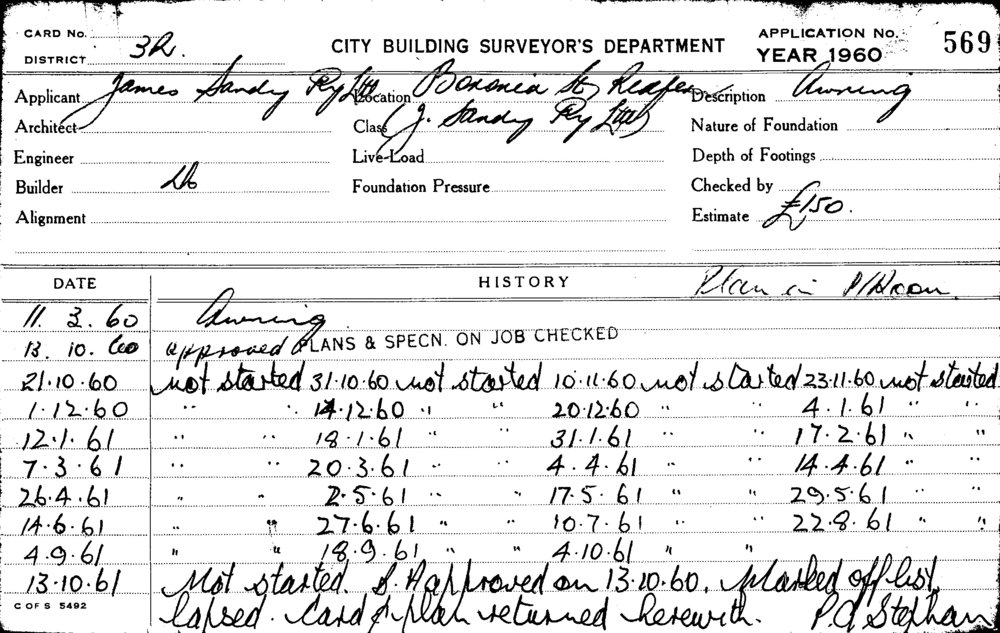 CARD No.
DISTRICT 3R.
CITY BUILDING SURVEYOR'S DEPARTMENT
APPLICATION No. 569
YEAR 1960
Applicant James Sandy Pty Ltd Location Boronia St Redfern Description Awning
Architect Class (J. Sandy Pty Ltd) Nature of Foundation
Engineer Live-Load Depth of Footings
Builder Foundation Pressure Checked by
Alignment Estimate £150.
DATE HISTORY Plan in P/Room.
11. 3. 60 Awning.
13. 10. 60 approved PLANS & SPECN. ON JOB CHECKED
21.10.60 not started 31.10.60 not started 10.11.60 not started 23.11.60 not started
1.12.60 " " 14.12.60 " " 20.12.60 " " 4.1.61 " "
12.1.61 " " 18.1.61 " " 31.1.61 " " 17.2.61 " "
7.3.61 " " 20.3.61 " " 4.4.61 " " 14.4.61 " "
26.4.61 " " 2.5.61 " " 17.5.61 " " 29.5.61 " "
14.6.61 " " 27.6.61 " " 10.7.61 " " 22.8.61 " "
4.9.61 " " 18.9.61 " " 4.10.61 " "
13.10.61 Not started. approved on 13.10.60. Marked off list,
lapsed. Card & plan returned herewith. P.A Stephan
C OF S 5492